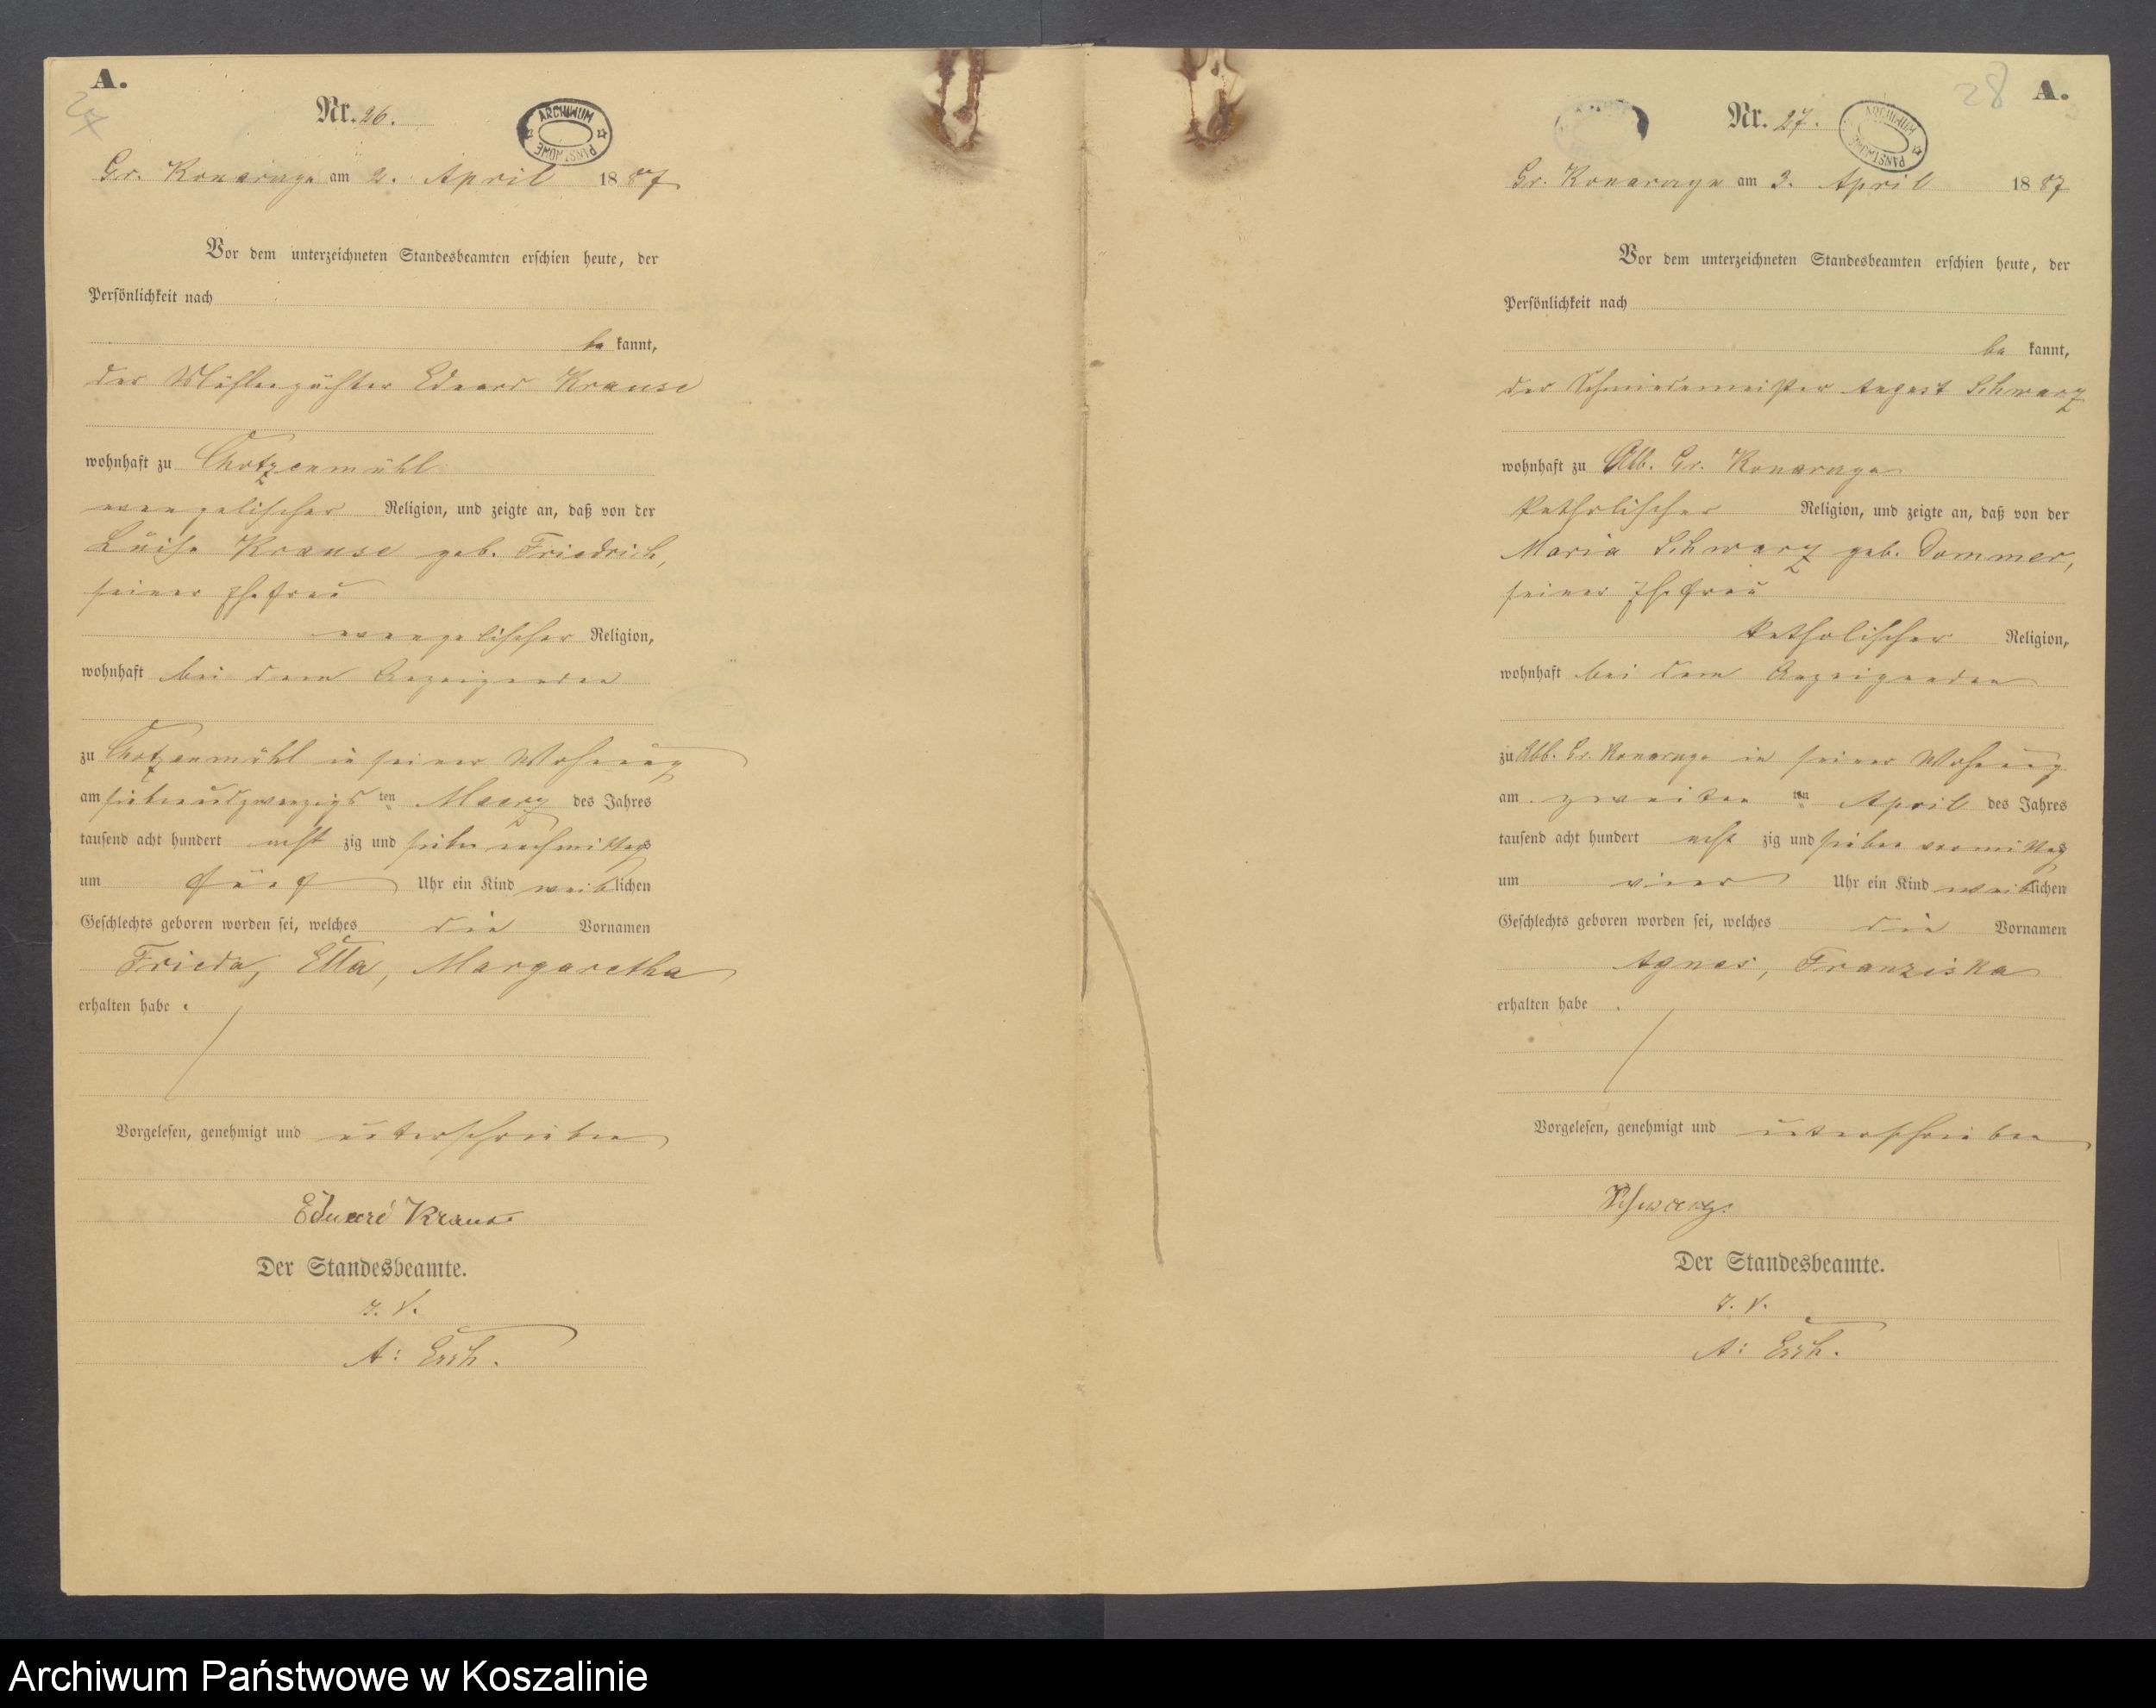 A.
27
Nr. 26.
ARCHIWUM PAŃSTWOWE
Gr. Konarczyn am 2. April 1887
Vor dem unterzeichneten Standesbeamten erschien heute, der
Persönlichkeit nach
be kannt,
der Mühlenpächter Eduard Krause
wohnhaft zu Chotzenmühl
evangelischer Religion, und zeigte an, daß von der
Luise Krause geb. Friedrich,
seiner Ehefrau
evangelischer Religion,
wohnhaft bei dem Anzeigenden
zu Chotzenmühl in seiner Wohnung
am siebenundzwanzigsten Maerz des Jahres
tausend acht hundert acht zig und sieben nachmittags
um fünf Uhr ein Kind weiblichen
Geschlechts geboren worden sei, welches die Vornamen
Frieda, Etta, Margaretha
erhalten habe.
Vorgelesen, genehmigt und unterschrieben
Eduard Krause
Der Standesbeamte.
I. V.
A:
28
A.
Nr. 27.
ARCHIWUM PAŃSTWOWE
Gr. Konarczyn am 3. April 1887
Vor dem unterzeichneten Standesbeamten erschien heute, der
Persönlichkeit nach
be kannt,
der Schmiedemeister August Schwarz
wohnhaft zu Abb. Gr. Konarczyn
katholischer Religion, und zeigte an, daß von der
Maria Schwarz geb. Dommer,
seiner Ehefrau
katholischer Religion,
wohnhaft bei dem Anzeigenden
zu Abb. Gr. Konarczyn in seiner Wohnung
am zweiten ten April des Jahres
tausend acht hundert acht zig und sieben vormittags
um vier Uhr ein Kind weiblichen
Geschlechts geboren worden sei, welches die Vornamen
Agnes, Franziska
erhalten habe.
Vorgelesen, genehmigt und unterschrieben
Schwarz.
Der Standesbeamte.
I. V.
A:
Archiwum Państwowe w Koszalinie